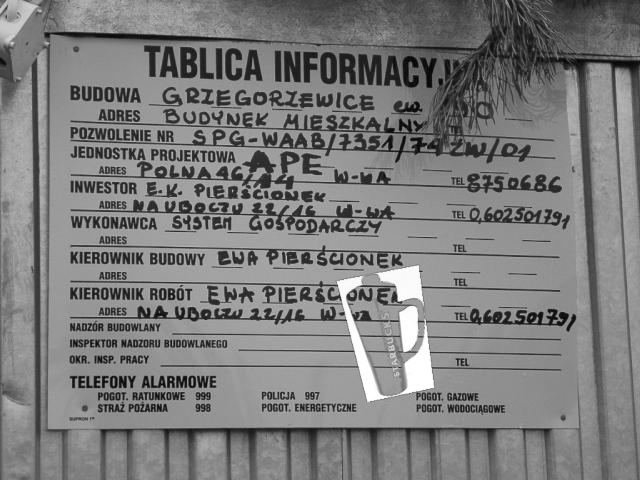 TABLICA INFORMACYJNA
BUDOWA GRZEGORZEWICE ew.
ADRES BUDYNEK MIESZKALNY
POZWOLENIE NR SPG-WAAB/7351/74 ZW/01
JEDNOSTKA PROJEKTOWA APE
ADRES POLNA 46/14 W-WA TEL 8750686
INWESTOR E.K. PIERŚCIONEK
ADRES NA UBOCZU 22/16 W-WA TEL 0,602501791
WYKONAWCA SYSTEM GOSPODARCZY
ADRES TEL
KIEROWNIK BUDOWY EWA PIERŚCIONEK
ADRES TEL
KIEROWNIK ROBÓT EWA PIERŚCIONEK
ADRES NA UBOCZU 22/16 W-WA TEL 0,602501791
NADZÓR BUDOWLANY
INSPEKTOR NADZORU BUDOWLANEGO
OKR. INSP. PRACY TEL
STARBUCKS
TELEFONY ALARMOWE
POGOT. RATUNKOWE 999 POLICJA 997 POGOT. GAZOWE
STRAŻ POŻARNA 998 POGOT. ENERGETYCZNE POGOT. WODOCIĄGOWE